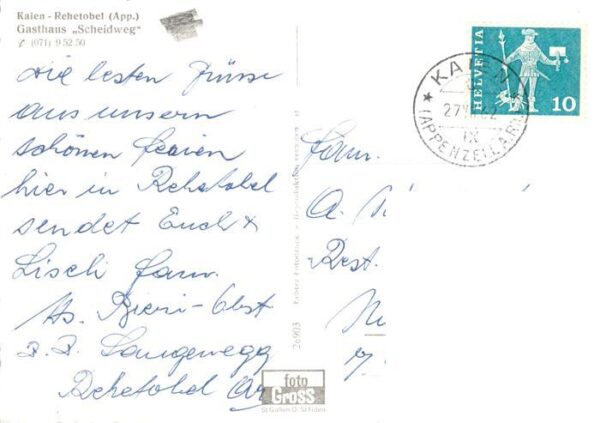 Kaien - Rehetobel (App.)
Gasthaus „Scheidweg“
(071) 9 52 50
Die besten Grüsse
aus unsern
schönen Ferien
hier in Rehetobel
sendet Euch
Lisch Fam.
Hs. Bieri-Obst
z. Z. Langenegg
Rehetobel
26903
foto
Gross
St Gallen O. St Fiden
HELVETIA
10
KAIEN
(APPENZELL A.RH.)
IX
Fam.
A.
Rest.